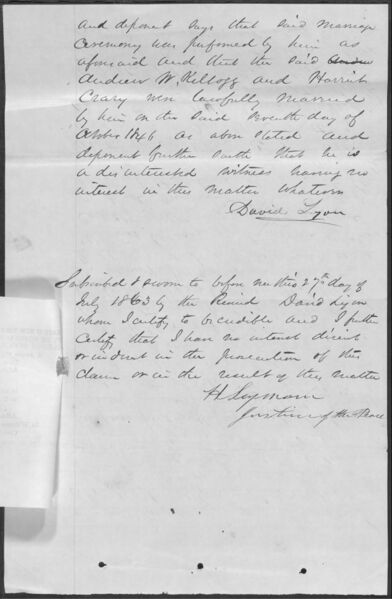 and deponent says that said marriage
ceremony was performed by him as
aforesaid and that the said Andrew
Andrew W. Kellogg and Harriet
Crary were lawfully married
by him on the said Seventh day of
October 1846 as above stated and
deponent further saith that he is
a disinterested witness having no
interest in this matter whatever
David Lyon
Subscribed & sworn to before me this 27th day of
July 1863 by the said David Lyon
whom I certify to be credible and I further
certify that I have no interest direct
or indirect in the prosecution of this
claim or in the result of this matter
H Seymour
Justice of the Peace